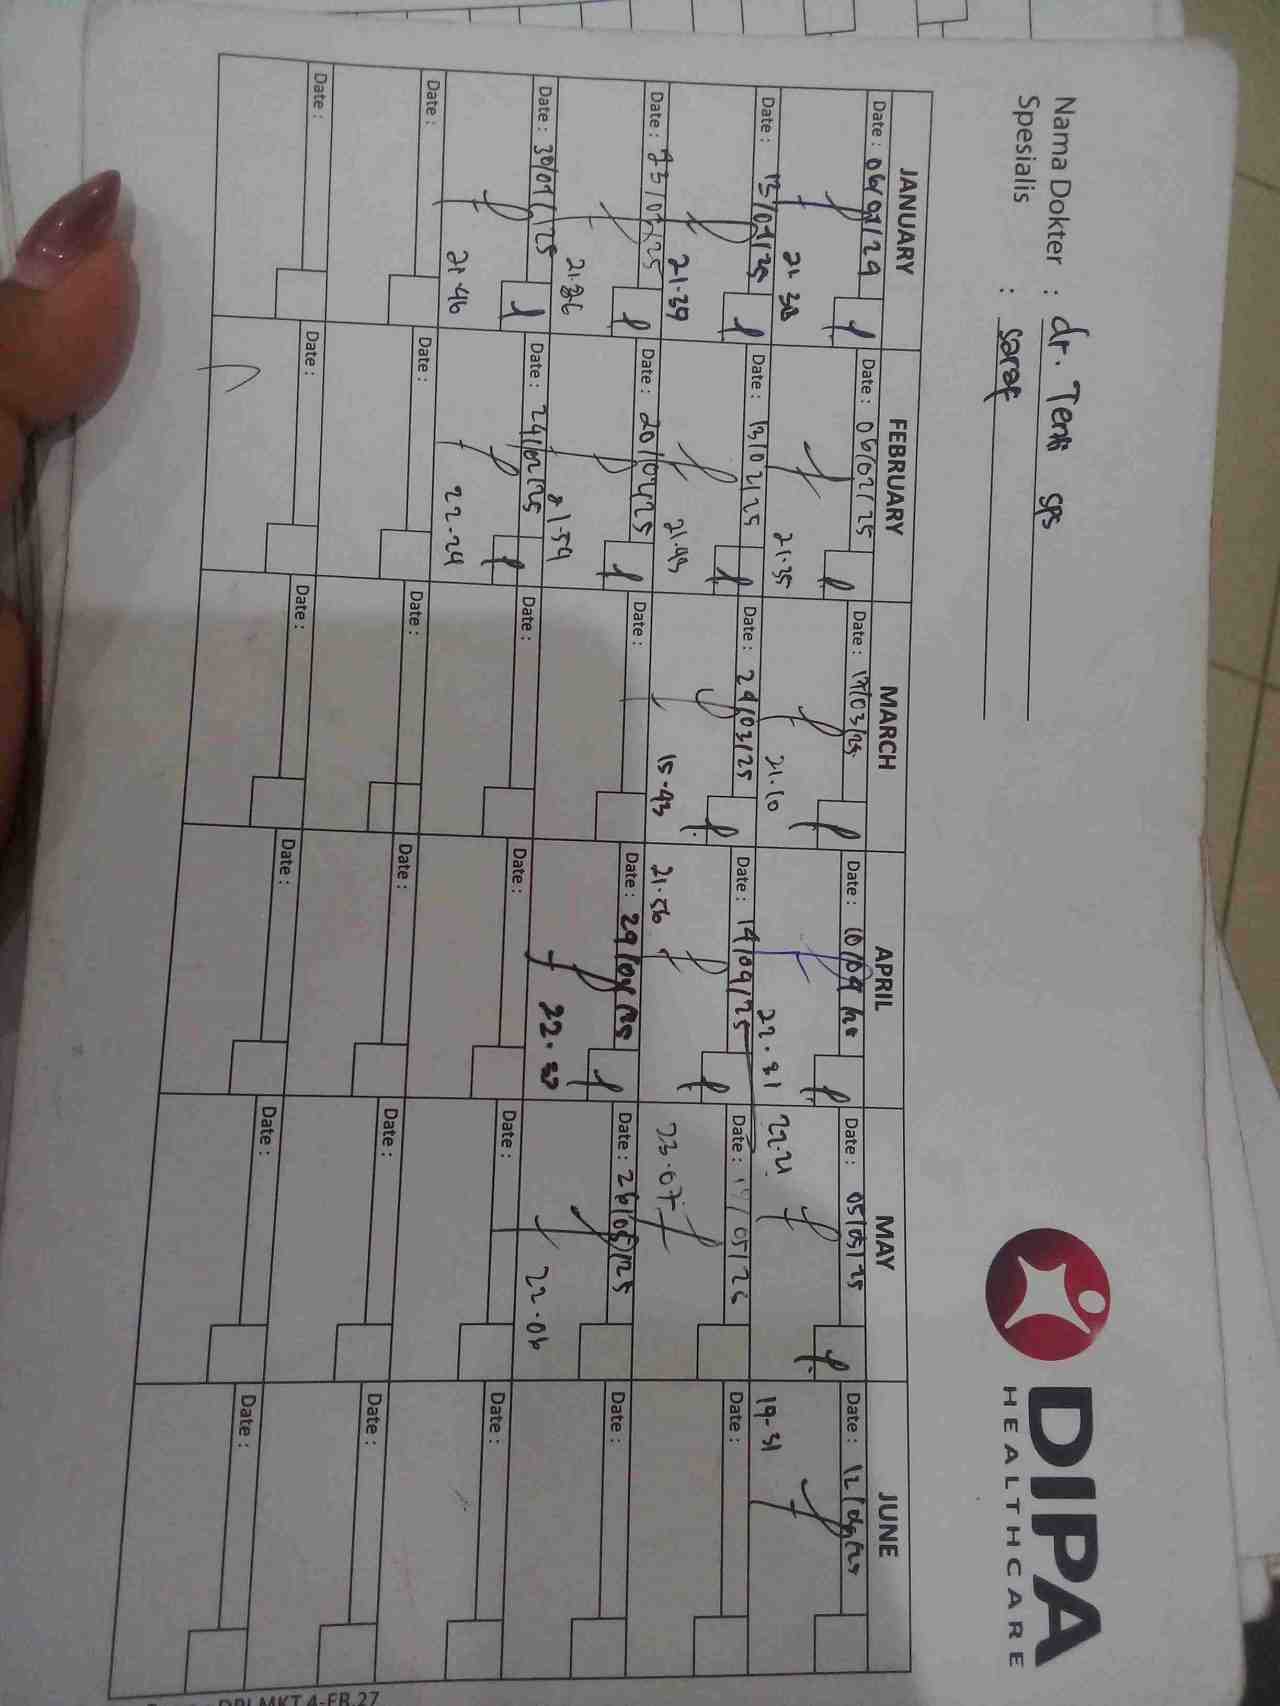 Nama Dokter : dr. Teni sps
Spesialis : saraf
DIPA
HEALTHCARE
JANUARY FEBRUARY MARCH APRIL MAY JUNE
Date : 06/01/24 Date : 06/02/25 Date : 17/03/25 Date : 10/04/25 Date : 05/05/25 Date : 12/06/25
21.38 21.35 21.10 22.31 22.21 19-31
Date : 13/01/25 Date : 13/02/25 Date : 24/03/25 Date : 14/04/25 Date : 19/05/25 Date :
21.39 21.43 15.43 21.56 23.07
Date : 23/01/25 Date : 20/02/25 Date : Date : 29/04/25 Date : 26/05/25 Date :
21.36 21.54 22.37 22.06
Date : 30/01/25 Date : 24/02/25 Date : Date : Date : Date :
21.46 22.24
Date : Date : Date : Date : Date : Date :
Date : Date : Date : Date : Date : Date :